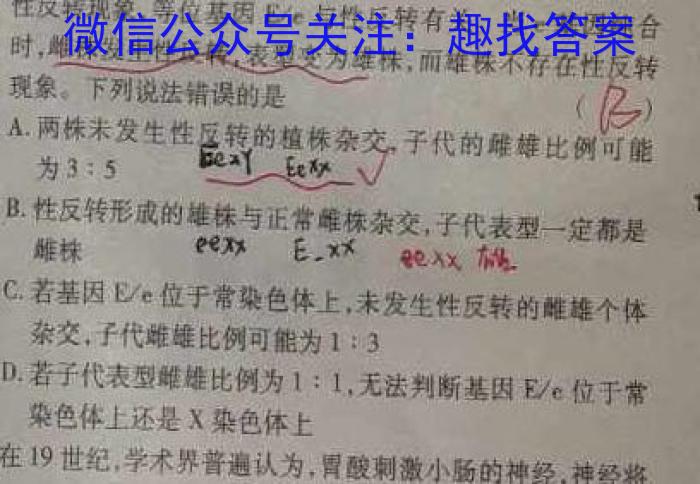 性反转现象,等位基因E/e与性反转有
合
微信公众号关注:趣找答案
时,雌株发生性反转,表型变为雄株,而雄株不存在性反转
现象。下列说法错误的是 ( B )
A.两株未发生性反转的植株杂交,子代的雌雄比例可能
为3:5
EeXY EeXX
B.性反转形成的雄株与正常雌株杂交,子代表型一定都是
雌株
eeXX E_XX eeXX 雄
C.若基因E/e位于常染色体上,未发生性反转的雌雄个体
杂交,子代雌雄比例可能为1:3
D.若子代表型雌雄比例为1:1,无法判断基因E/e位于常
染色体上还是X染色体上
在19世纪,学术界普遍认为,胃酸刺激小肠的神经,神经将